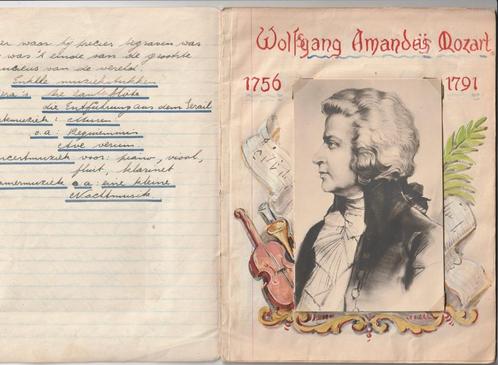 er waar hij precies begraven was
was 't einde van de grootste
van de wereld.
Enkele muziekstukken
era's : die Zauberflöte
die Entführung aus dem Serail
kmuziek : Missen
o.a : Requiemmis
Ave verum
certmuziek voor: piano, viool,
fluit, klarinet
amermuziek o.a: eine kleine
Nachtmusik
Wolfgang Amandeüs Mozart.
1756 1791